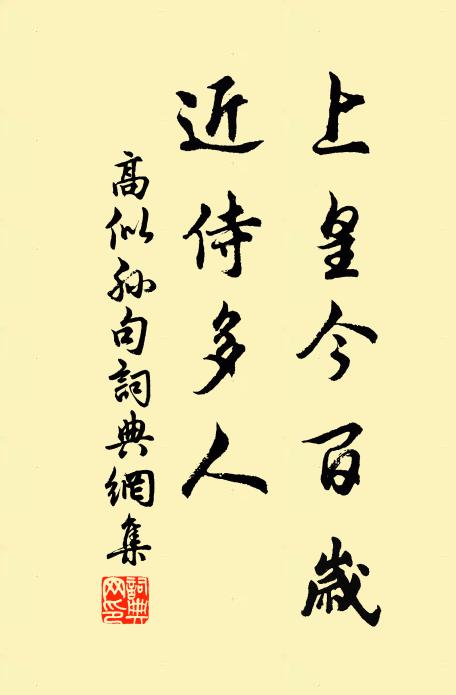 上皇今百歲
近侍多人
高似孫句詞典網集
詞典
网印